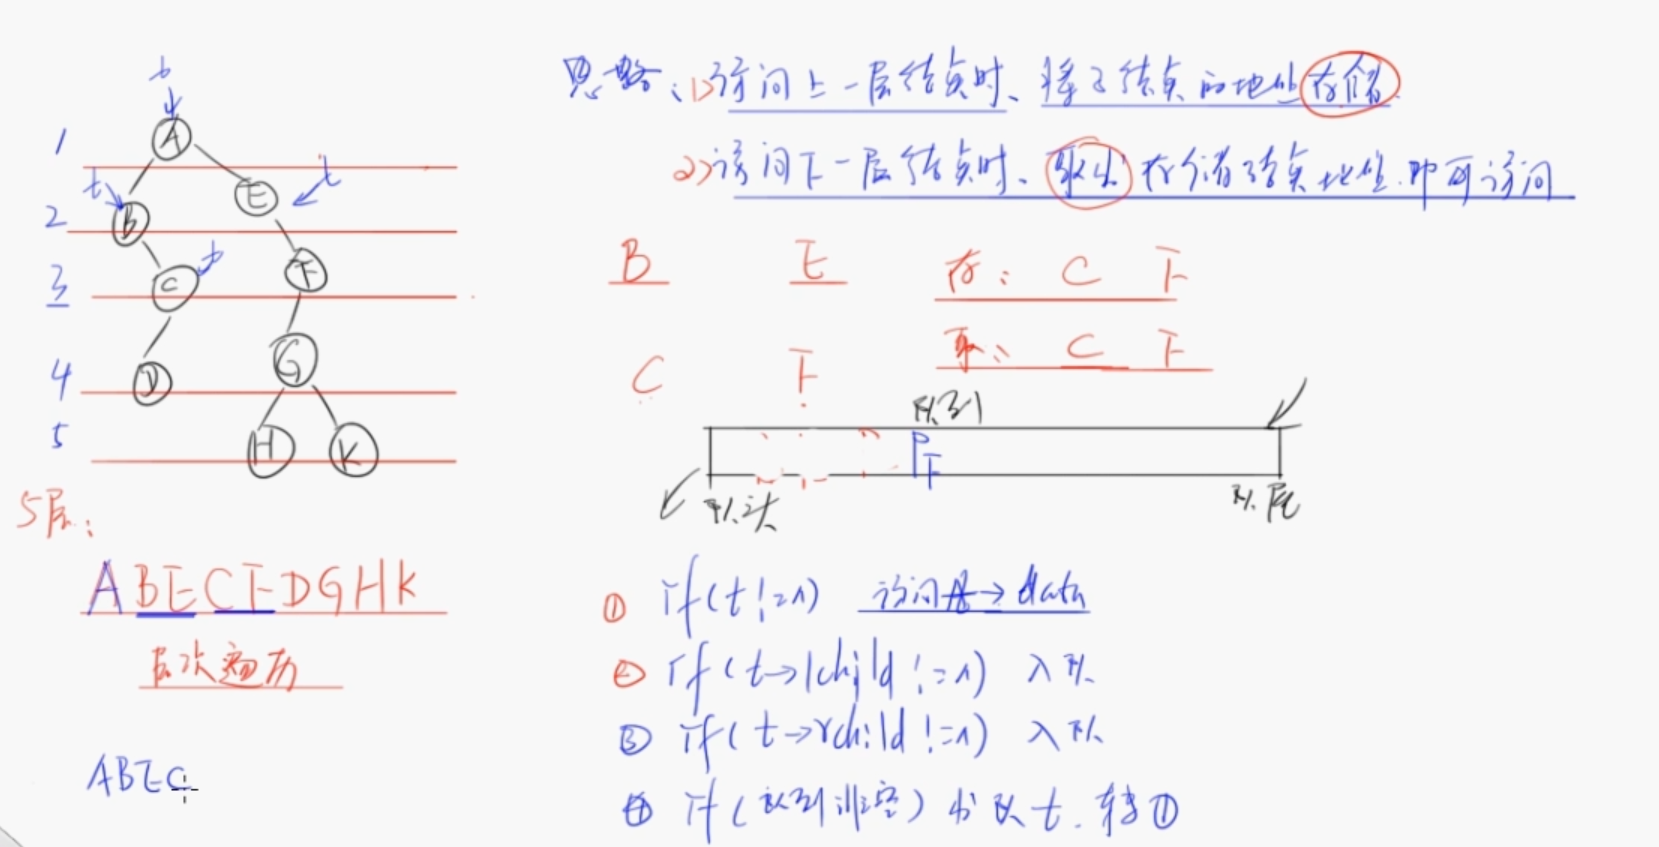 t
1 A
t E t
2 B
t
3 C F
G
4 D
5 H K
5层:
A BE CF DGHK
层次遍历
ABEC
思路:1)访问上一层结点时、将子结点的地址存储.
2)访问下一层结点时、取出存储结点地址.即可访问
B E 存: C F
C F 取: C F
队列
F
队头 队尾
① if(t!=∧) 访问 → data
② if(t->lchild !=∧) 入队
③ if(t->rchild !=∧) 入队
④ if(队列非空) 出队 t. 转①